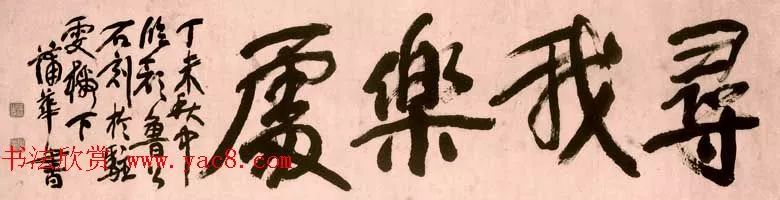 尋我樂處
丁未秋中
臨顏魯公
石刻於駐
雯樓下
蒲華
书法欣赏 www.yac8.com